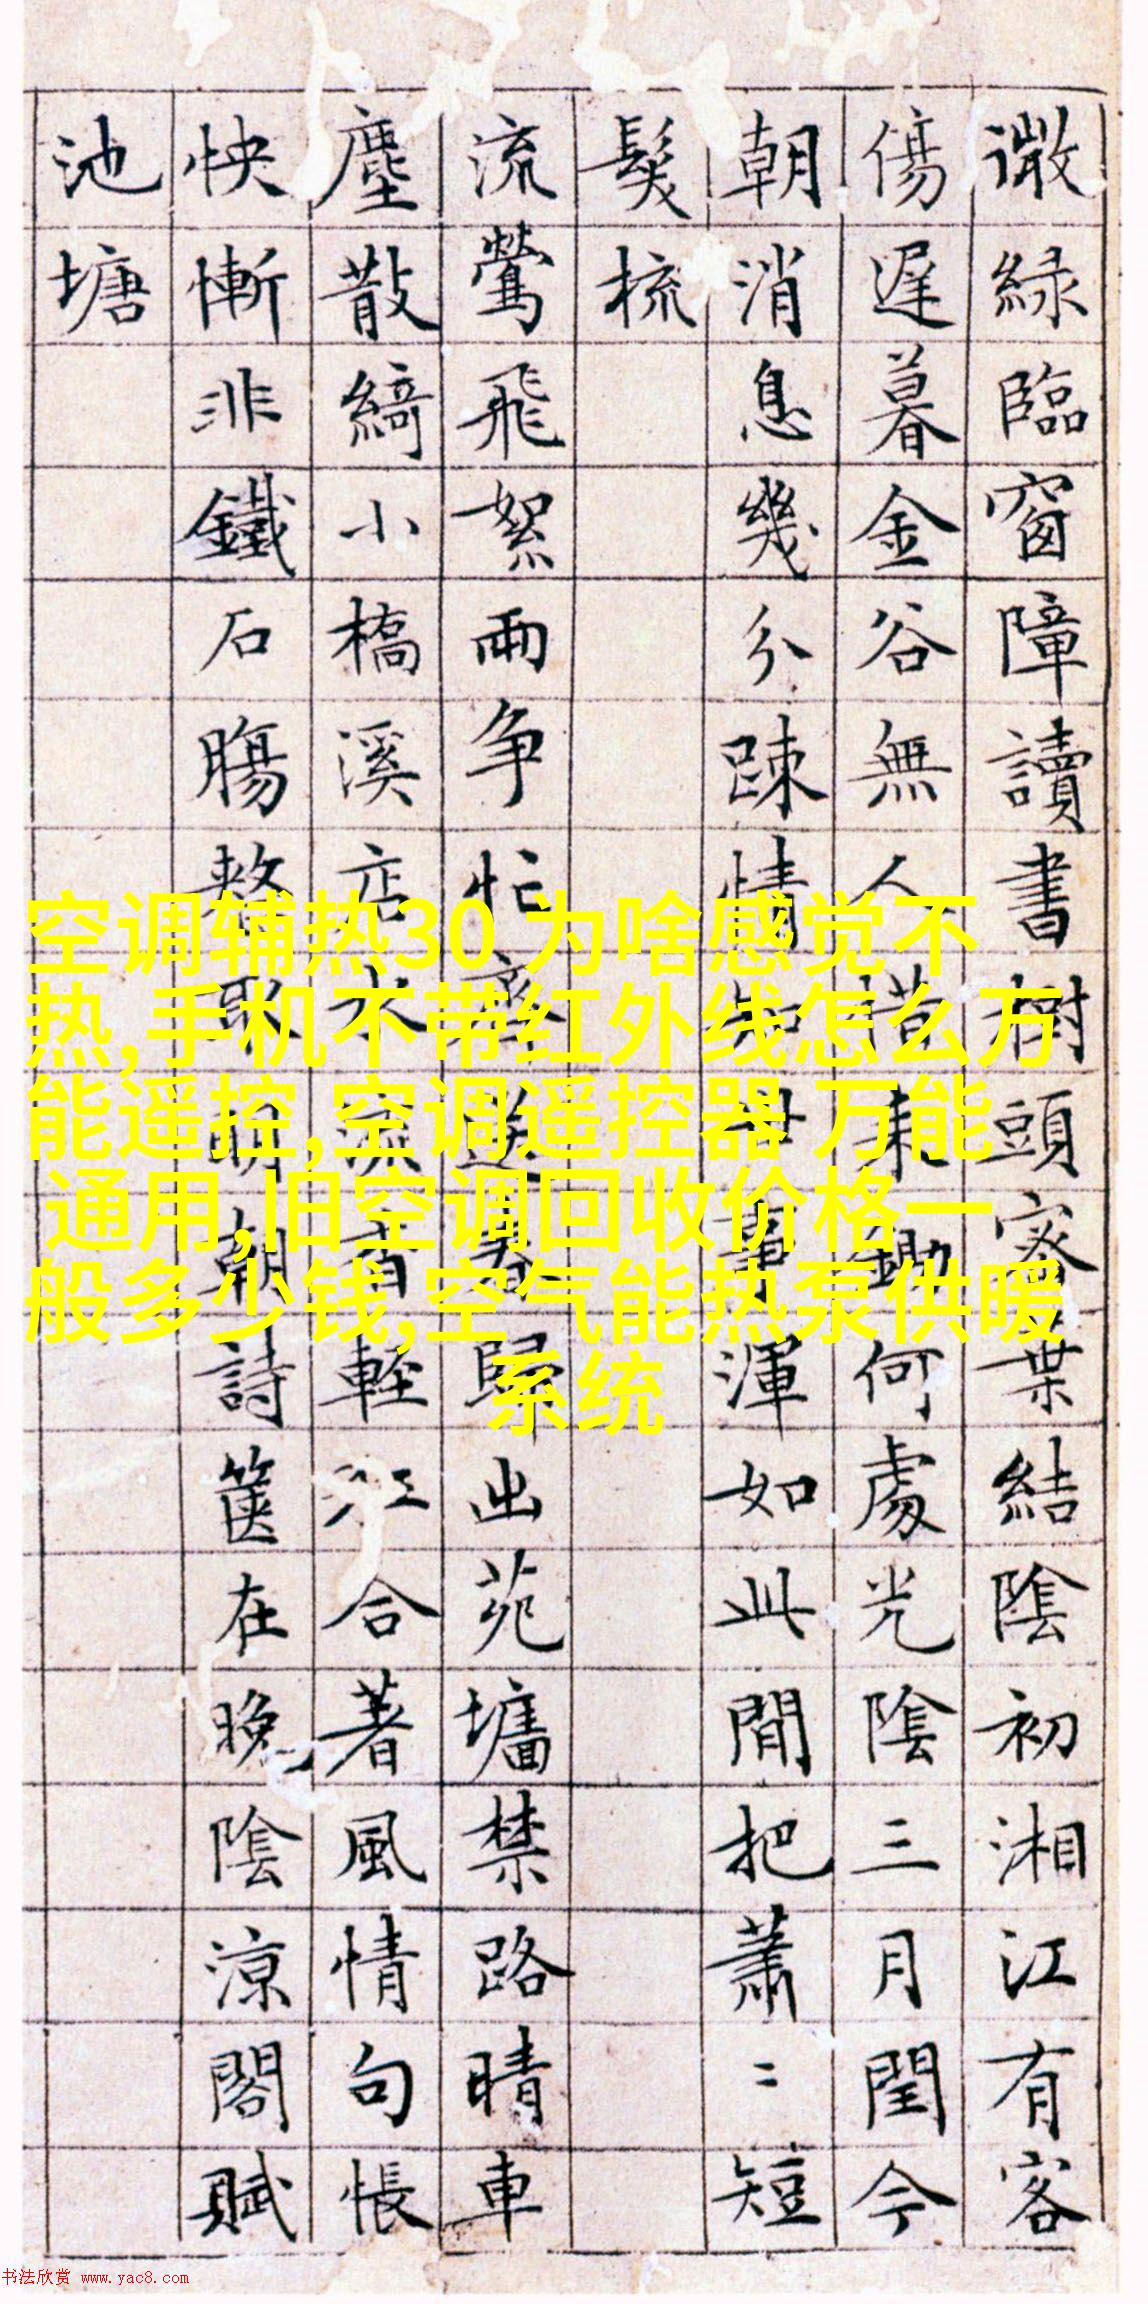 微綠臨窗障讀書樹頭密葉結陰初湘江有客
傷遲暮金谷無人鋤何處光陰三月閏今
朝消息幾分疎情知事渾如此閒把蕭〻短
鬢梳
流鶯飛絮兩爭忙齊送春歸出苑墻禁路晴車
塵散綺小橋溪店水流香輕江合著風情句悵
怏慚非鐵石腸取明朝詩篋在晚陰涼閣賦
池塘
空调辅热30 为啥感觉不
热,手机不带红外线怎么万
能遥控,空调遥控器 万能
通用,旧空调回收价格一
般多少钱,空气能热泵供暖
系统
书法欣赏 www.yac8.com